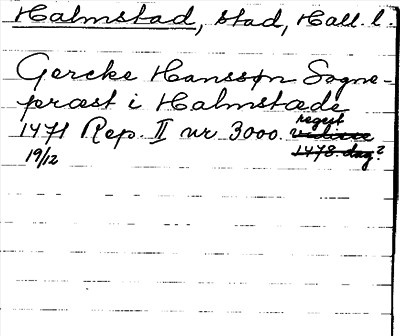 Halmstad, stad, Hall. l.
Gercke Hanssøn Sogne-
præst i Halmstæde
1471 Rep. II nr 3000. regest
19/12 1478. dag?